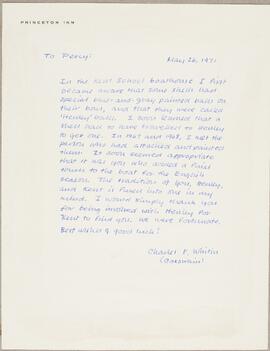 PRINCETON INN
To Percy:
May 26, 1971
In the Kent School boathouse I first
became aware that some shells had
special blue-and-gray painted balls on
their bows, and that they were called
'Henley' balls. I soon learned that a
shell had to have travelled to Henley
to get one. In 1967 and 1968, I met the
person who had attached and painted
them. It soon seemed appropriate
that it was you who added a final
touch to the boat for the English
season. The tradition of you, Henley,
and Kent is fused into one in my
mind. I would simply thank you
for being involved with Henley. For
Kent to find you, we were fortunate.
Best wishes & good luck!
Charles F.
(Coxswain)